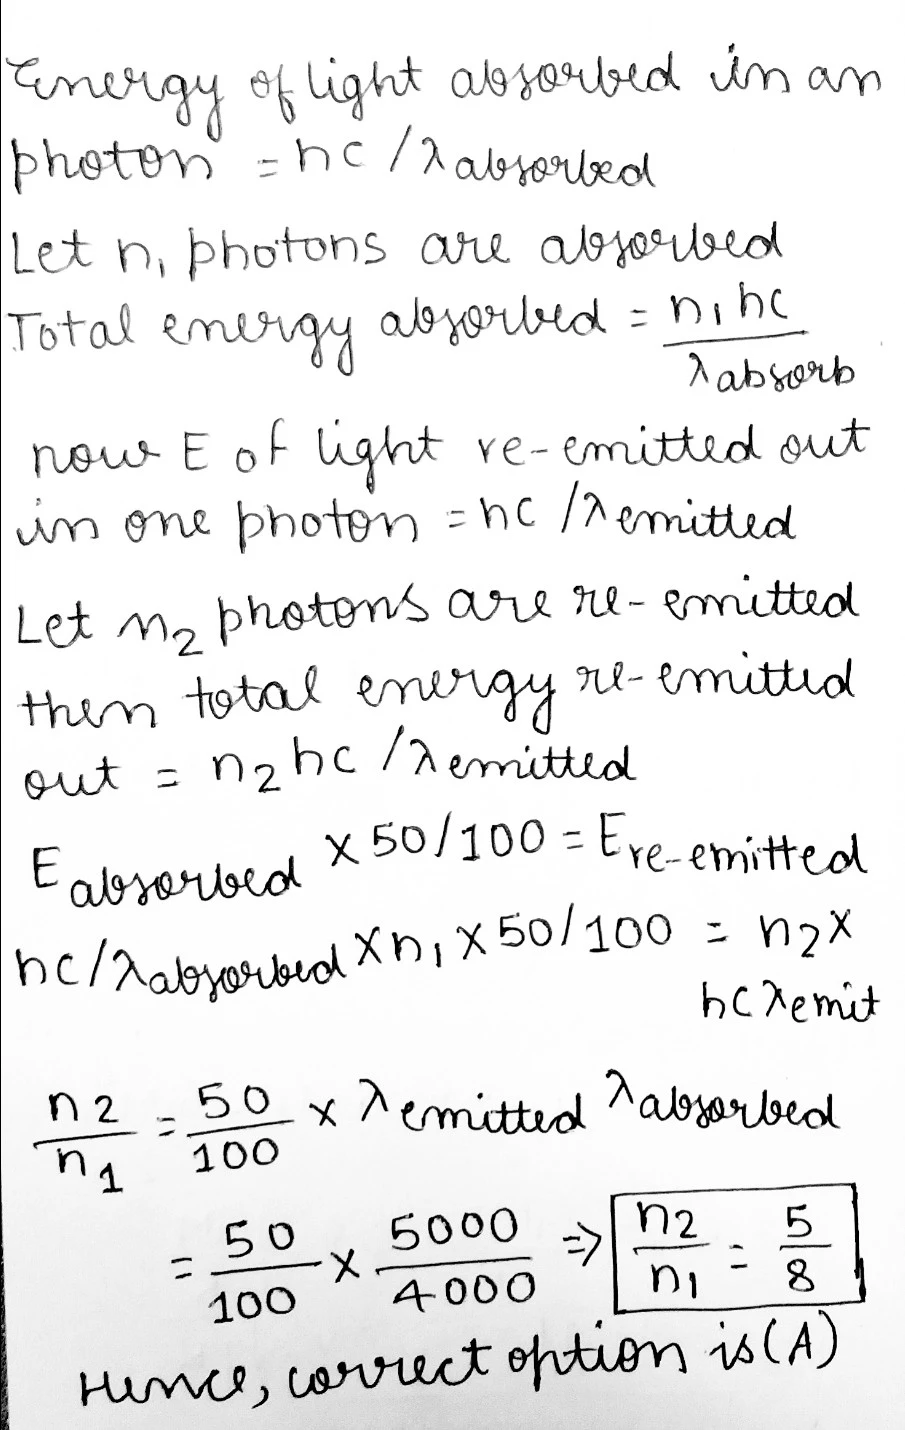 Energy of light absorbed in an
photon = hc / λabsorbed
Let n₁ photons are absorbed
Total energy absorbed = n₁hc / λabsorb
now E of light re-emitted out
in one photon = hc / λemitted
Let n₂ photons are re-emitted
then total energy re-emitted
out = n₂hc / λemitted
Eabsorbed × 50/100 = Ere-emitted
hc/λabsorbed × n₁ × 50/100 = n₂ ×
hcλemit
n2/n1 = 50/100 × λemitted λabsorbed
= 50/100 × 5000/4000 ⇒ n₂/n₁ = 5/8
Hence, correct option is (A)